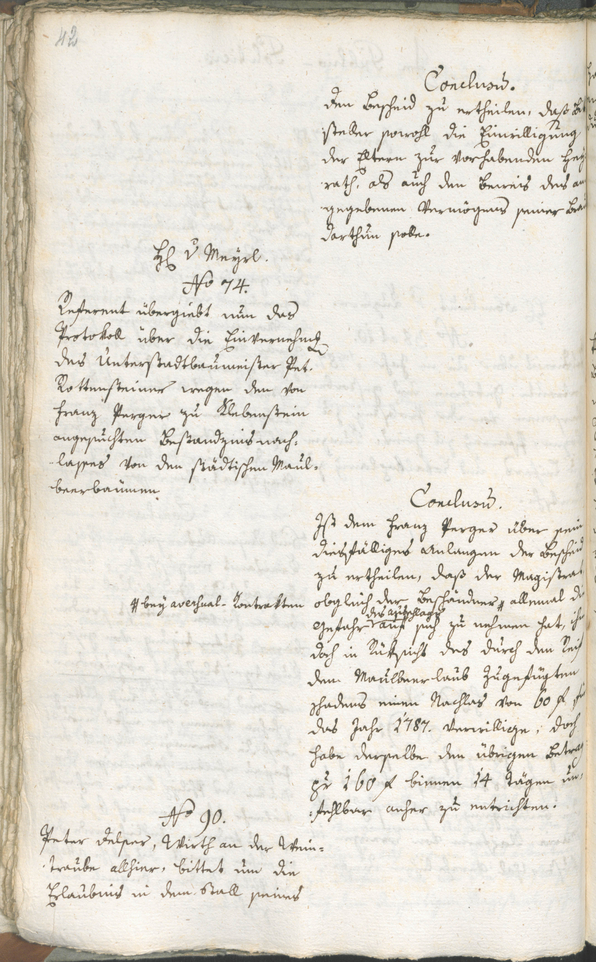 42
Conclusum.
den Bescheid zu ertheilen, daß Be
steller sowohl die Einwilligung
der Eltern zur vorhabenden Hey
rath, als auch den Beweis des an
gegebenen Vermögens seiner Bra
darthun solle.
H v Meyrl.
No 74.
Referent übergiebt nun das
Protokoll über die Einvernehmung
des Unterstadtbaumeister Pet.
Rottensteiner wegen dem von
Franz Perger zu Klebenstein
angesuchten Bestandzinsnach-
lasses von den städtischen Maul-
beerbäumen.
Conclusum.
Ist dem Franz Perger über sein
diesfälliges Anlangen der Bescheid
zu ertheilen, daß der Magistrat
obgleich der Beständner # allemal die
# bey aversual-Kontrakten
des Ausschlags
Gefahr auf sich zu nehmen hat, ihm
doch in Rüksicht des durch den Reif
dem Maulbeerlaub zugefügten
Schadens einen Nachlas von 60 f für
das Jahr 1787. verwillige; doch
habe derselbe den übrigen Betrag
pr 160 f binnen 14 Tägen un-
fehlbar anher zu entrichten.
No 90.
Peter Delser, Wirth an der Wein-
traube allhier, bittet um die
Erlaubnis in dem Stall seines